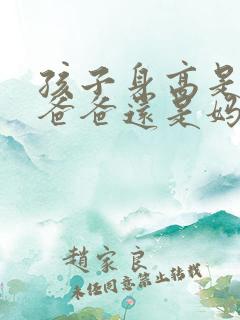 孩子身高是
爸爸還是妈
趙家良
未经同意禁止转载